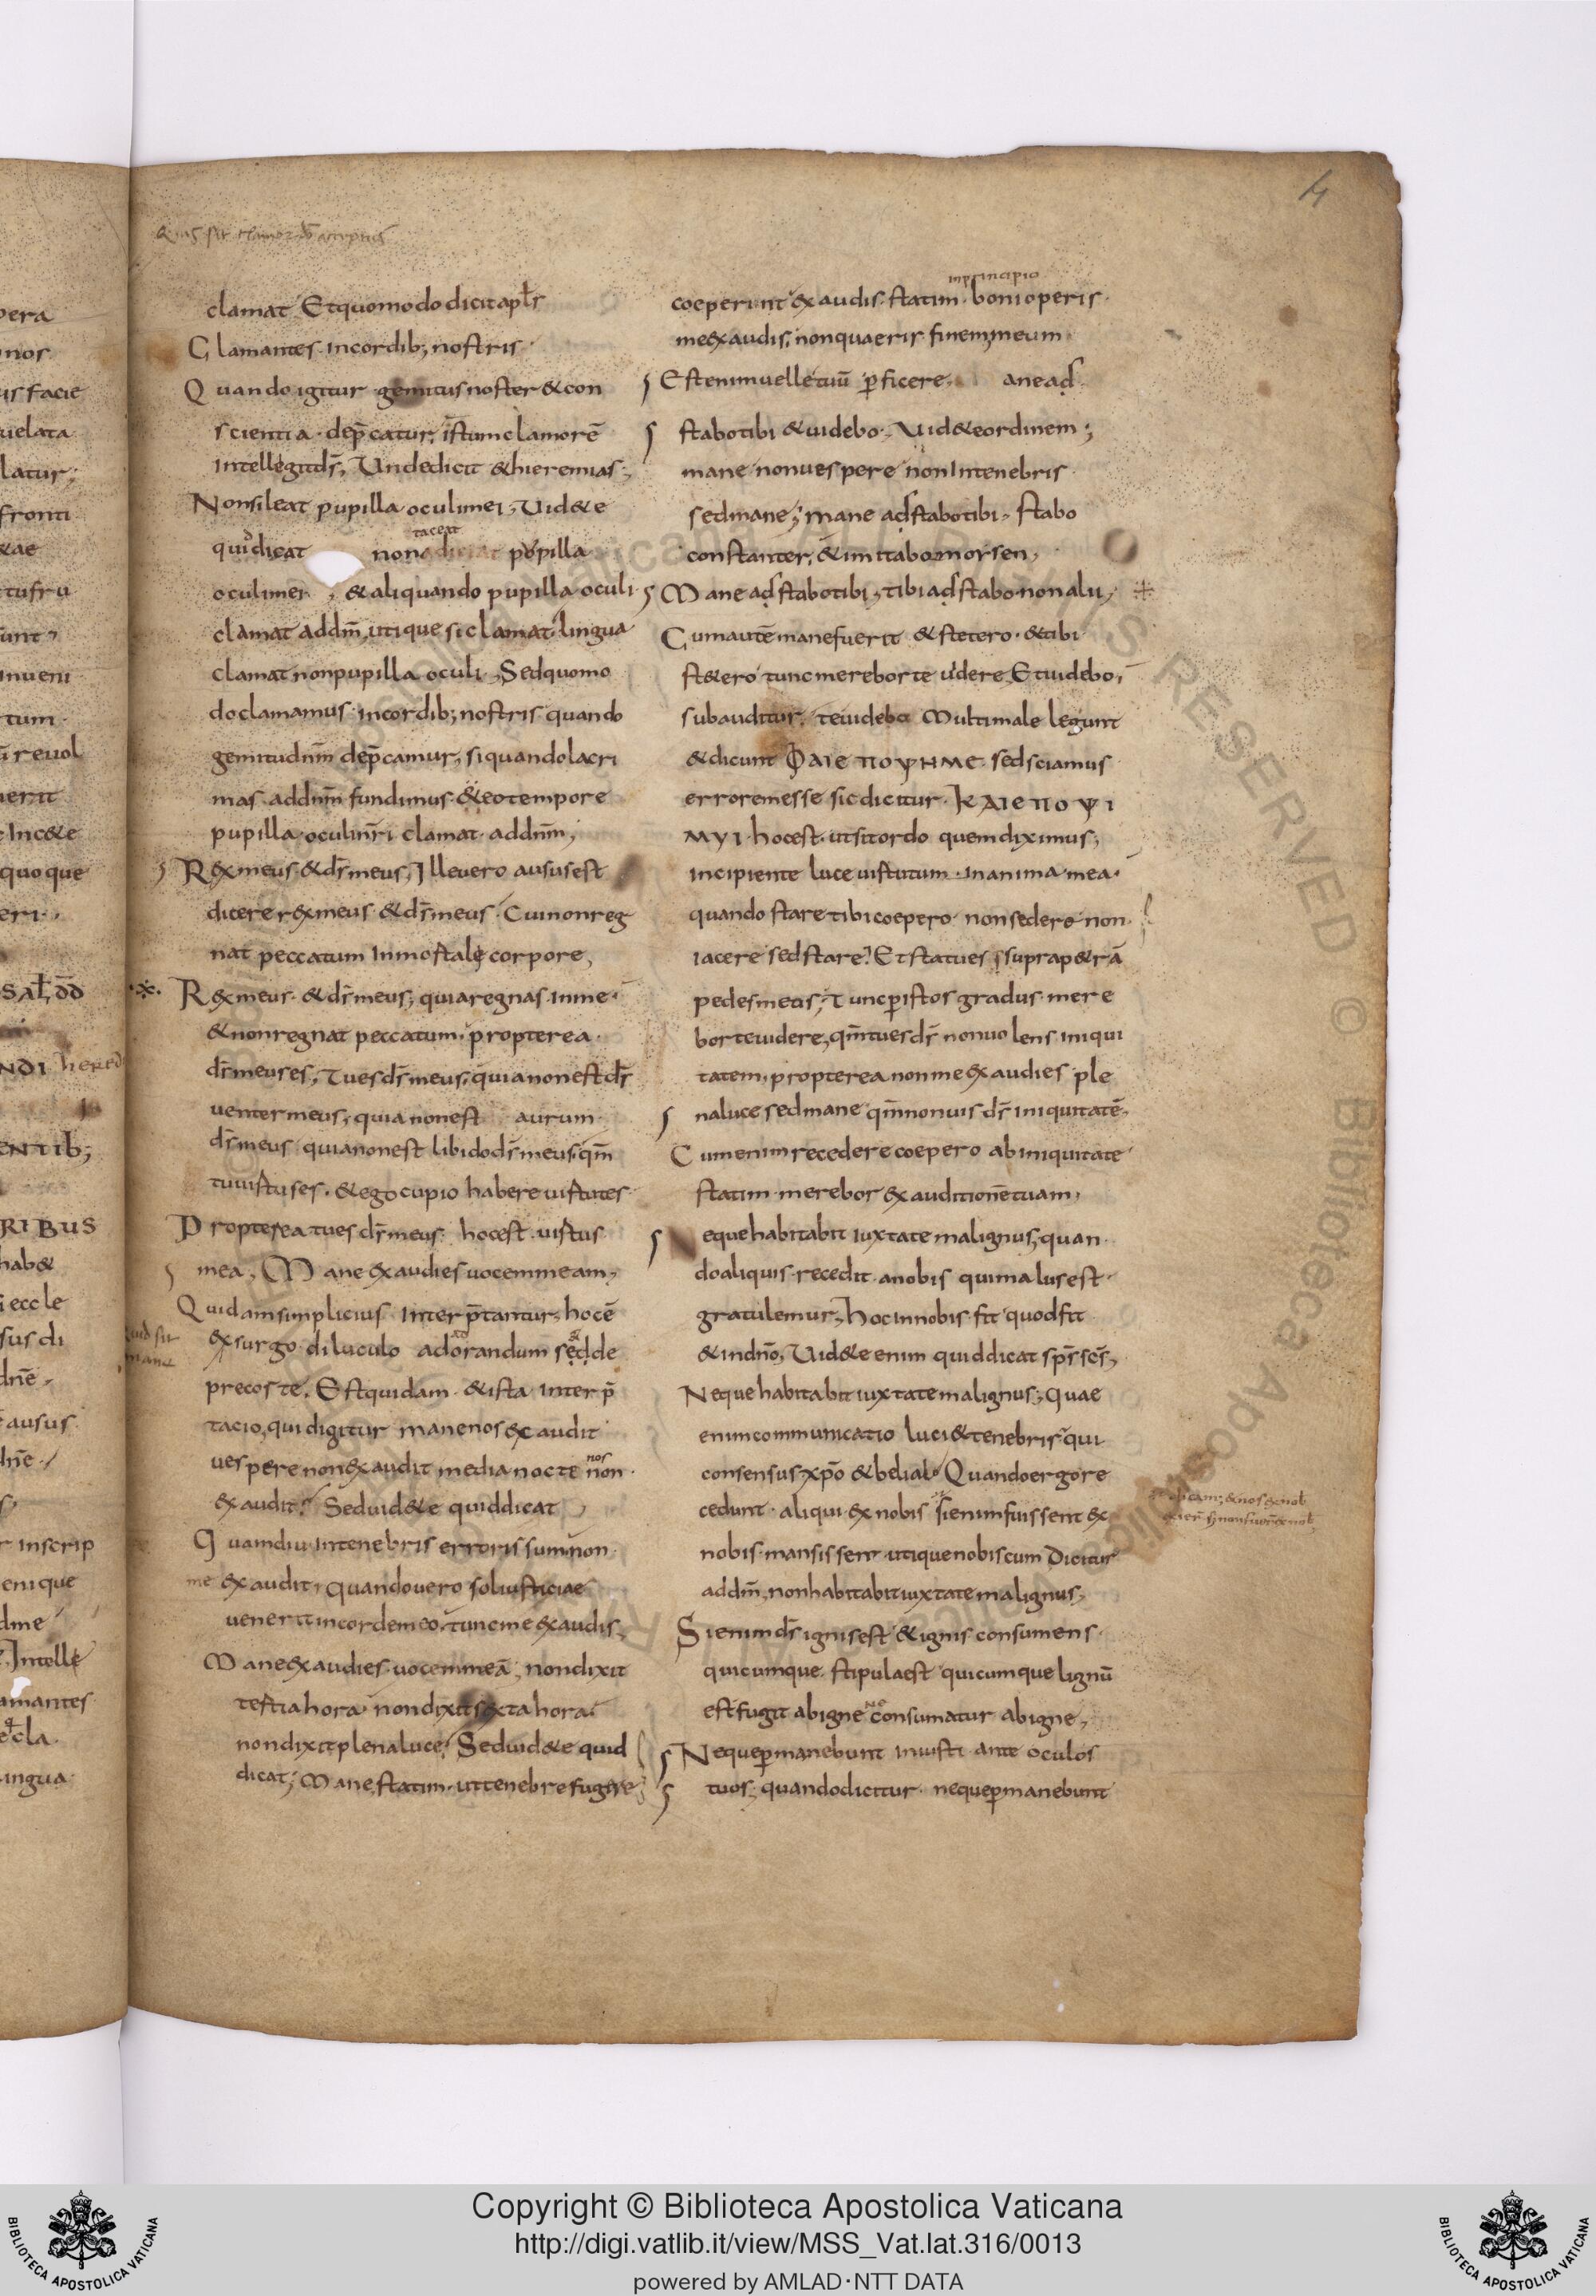 4
clamat Etquomodo dicit apl̄s
Clamantes incordib; nostris
Quando igitur gemitus noster & con
scientia dep̄catur, istum clamorē
intellegit ds̄, Unde dicit & hieremias;
Non sileat pupilla oculi mei, Uid&e
quid dicat non pupilla
taceat
oculi mei, & aliquando pupilla oculi
clamat ad dm̄, utique si clamat lingua
clamat non pupilla oculi, Sed quomo
do clamamus incordib; nostris quando
gemitu dnm̄ dep̄camur, si quando lacri
mas ad dnm̄ fundimus & eo tempore
pupilla oculi nr̄i clamat ad dnm̄,
Rex meus & ds̄ meus, Ille uero ausus est
dicere rex meus & ds̄ meus Cui non reg
nat peccatum inmortale corpore,
Rex meus & ds̄ meus, quia regnas inme
& non regnat peccatum propterea
ds̄ meus es, Tu es ds̄ meus, quia non est ds̄
uenter meus, quia non est aurum
ds̄ meus quia non est libido ds̄ meus, qm̄
tu uirtus es. & ego cupio habere uirtutes
Propterea tu es ds̄ meus hoc est uirtus
mea, Mane exaudies uocem meam,
Quidam simplicius interp̄tantur, hoc ē
exsurgo diluculo ad orandum sed de
precor te, Est quidam & ista interp̄
tacio, quid igitur mane nos exaudit
uespere non exaudit media nocte non
nos
exaudit? Sed uid&e quid dicat
Quamdiu intenebris erroris sum non
me exaudit, Quando uero sol iusticiae
uenerit incorde meo, tunc me exaudis,
Mane exaudies uocem meā, non dixit
tertia hora non dixit sexta hora
non dixit plena luce, Sed uid&e quid
dicat, Mane, statim ut tenebre fugire
inprincipio
coeperint exaudis statim boni operis
me exaudis, non quaeris finem meum
Est enim uelle tuū p̄ficere ane ad
stabo tibi & uidebo, Uid&e ordinem;
mane non uespere non intenebris
sed mane, mane adstabo tibi, stabo
constanter, & imitabo morsen,
Mane adstabo tibi, tibi adstabo non alii,
Cum autē mane fuerit & stetero & tibi
st&ero tunc merebor te uidere, Et uidebo,
subauditur, te uidebo Multi male legunt
& dicunt ΦΑΙΕ ΠΟΨΗΜΕ sed sciamus
errorem esse sic dicitur ΚΑΙΕΠΟΨΙ
ΜΥΙ hoc est ut sit ordo quem diximus,
incipiente luce uirtutum in anima mea
quando stare tibi coepero non sedere non
iacere sed stare? Et statues supra p&rā
pedes meos, Tunc p̄ istos gradus mere
bor te uidere, qm̄ tu es ds̄ non uolens iniqui
tatem, propterea non me exaudies ple
na luce sed mane qm̄ non uis ds̄ iniquitatē,
Cum enim recedere coepero ab iniquitate
statim merebor exauditionē tuam,
eque habitabit iuxta te malignus, quan
do aliquis recedit anobis qui malus est
gratulemur, hoc innobis fit quod fit
& indn̄o, Uid&e enim quid dicat sps̄ scs̄,
Neque habitabit iuxta te malignus, Quae
enim communicatio luci & tenebris qui
consensus xp̄o & belial Quando ergo re
cedunt aliqui ex nobis si enim fuissent ex
nobis mansissent utique nobiscum Dicitur
ad dm̄, non habitabit iuxta te malignus,
Si enim ds̄ ignis est & ignis consumens
quicumque stipula est quicumque lignū
est fugit ab igne ne consumatur ab igne,
Neque p̄manebunt iniusti ante oculos
tuos, quando dicitur neque p̄manebunt
Copyright © Biblioteca Apostolica Vaticana
http://digi.vatlib.it/view/MSS_Vat.lat.316/0013
powered by AMLAD·NTT DATA
BIBLIOTECA APOSTOLICA VATICANA
BIBLIOTECA APOSTOLICA VATICANA